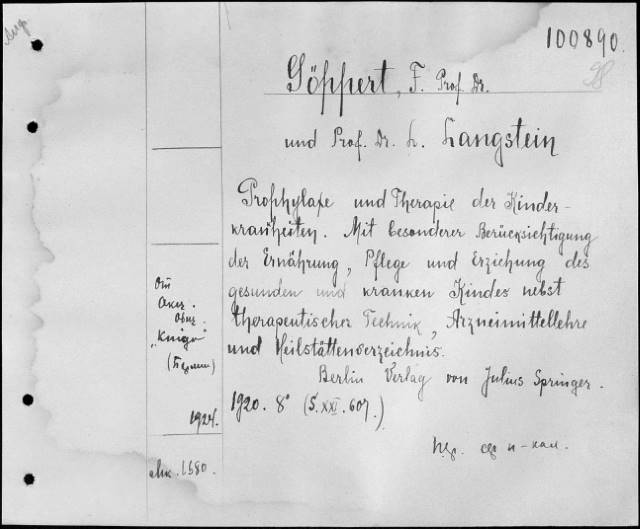 100890.
Göppert, F. Prof. Dr.
und Prof. Dr. L. Langstein
Prophylaxe und Therapie der Kinder-
krankheiten. Mit besonderer Berücksichtigung
der Ernährung, Pflege und Erziehung des
gesunden und kranken Kindes nebst
therapeutischer Technik, Arzneimittellehre
und Heilstättenverzeichnis.
Berlin Verlag von Julius Springer.
1920. 8° (S. XXI. 607.)
От
Акц.
Общ.
„Knigo"
1924.
1580.